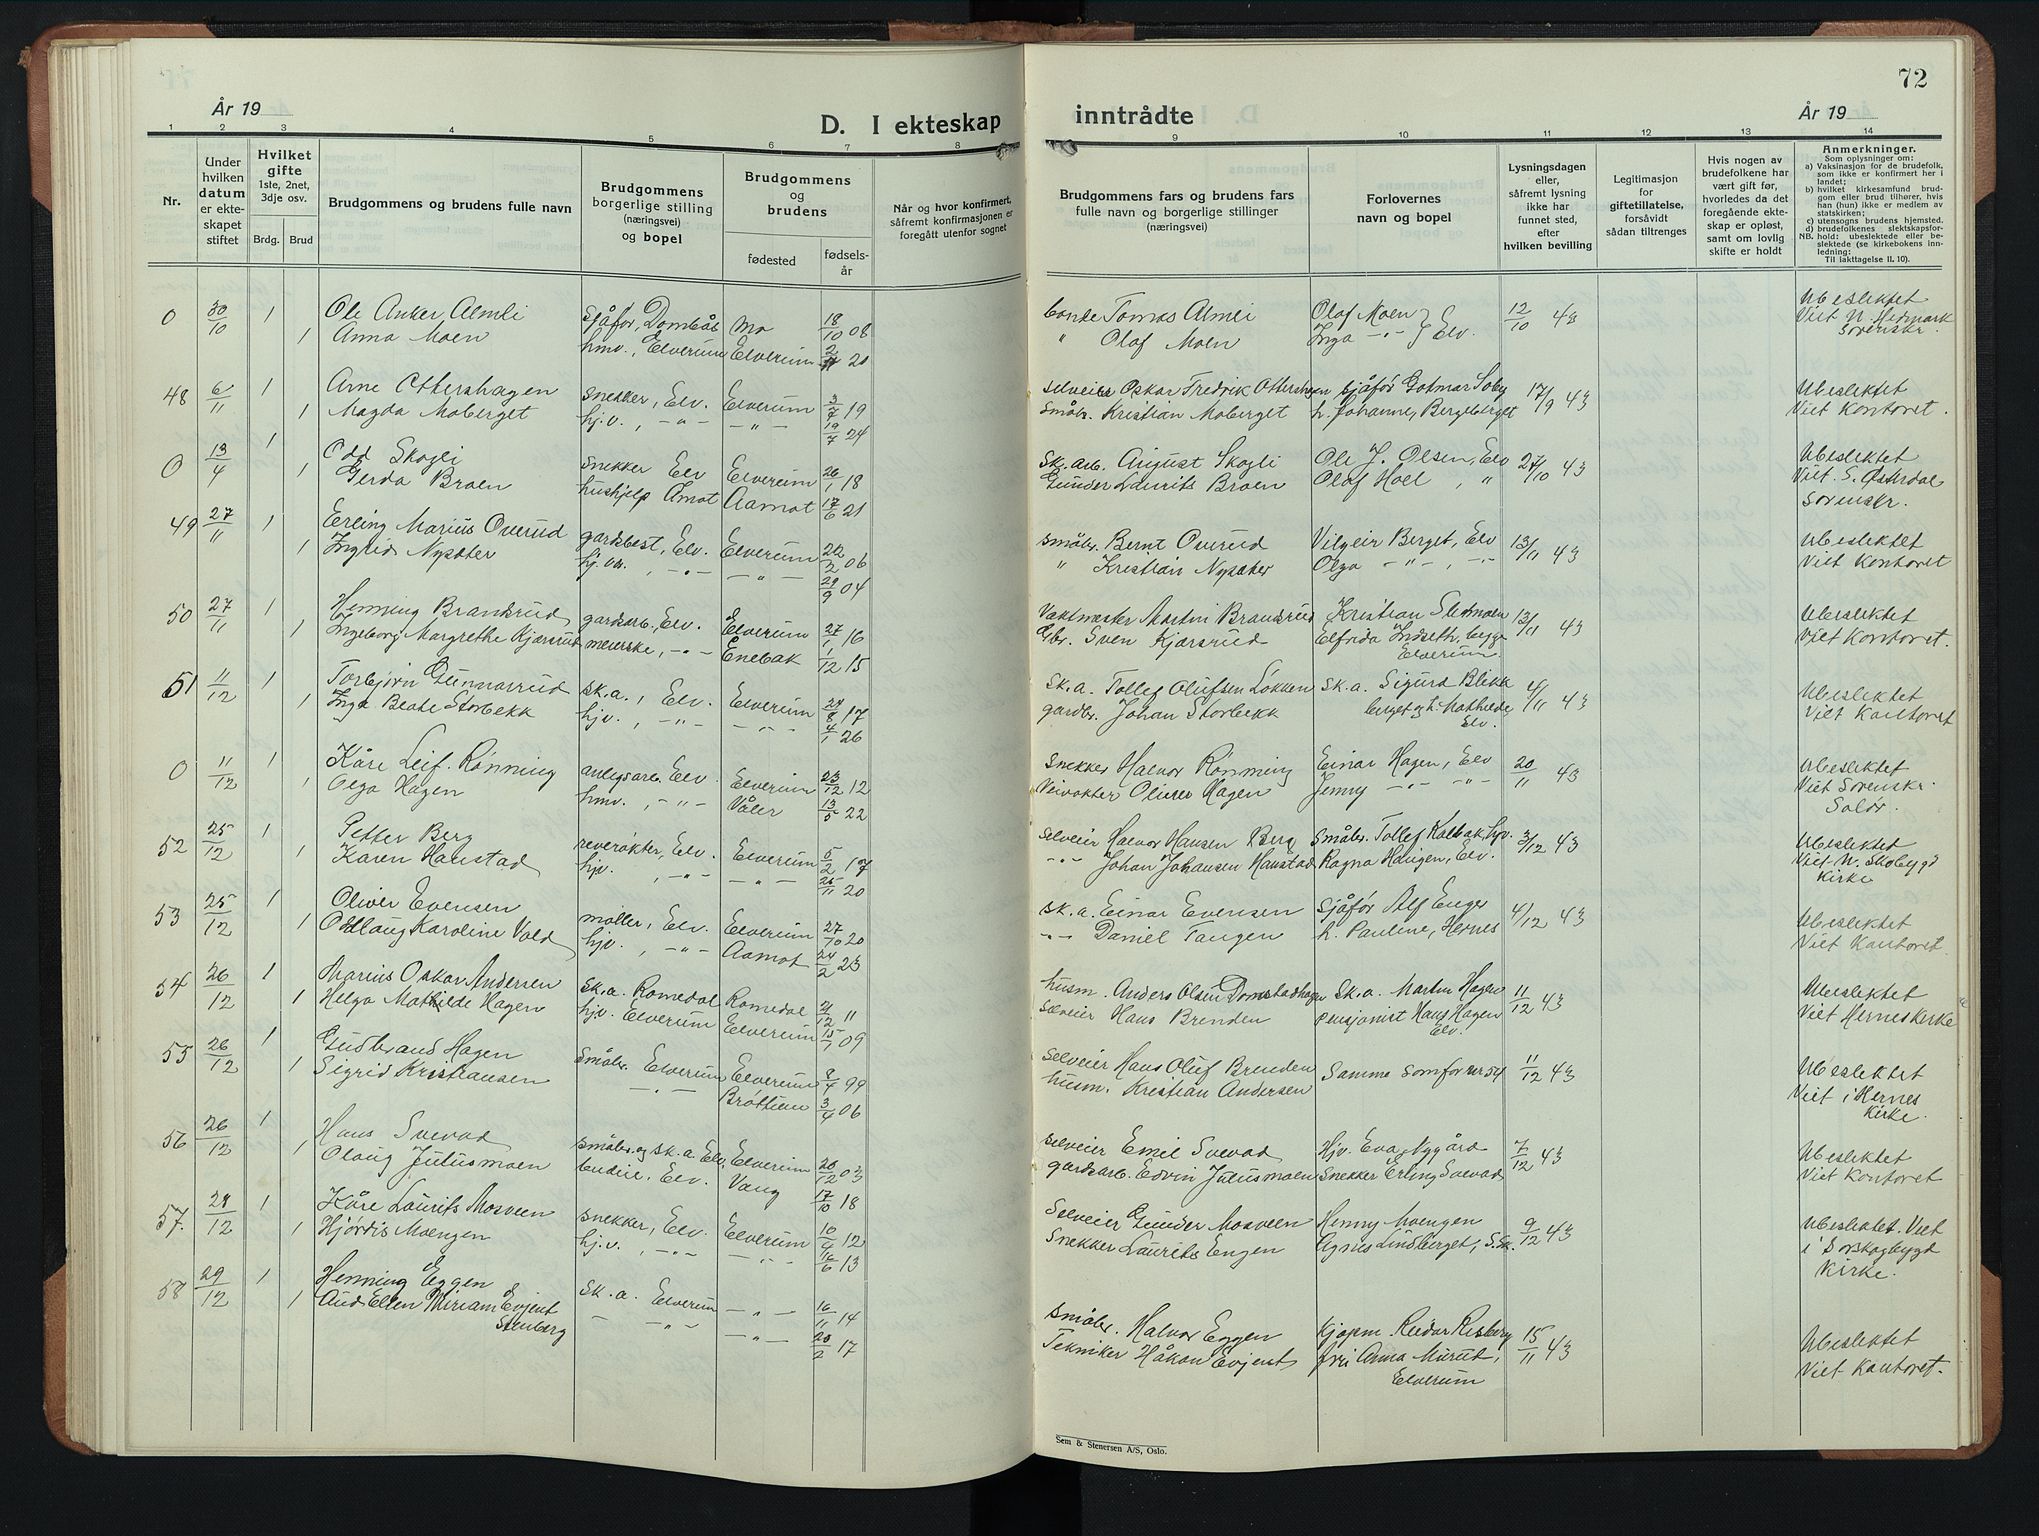 72
År 19
D. I ekteskap
inntrådte
År 19
1 2 3 4 5 6 7 8 9 10 11 12 13 14
Nr.
Under hvilken datum er ekteskapet stiftet
Hvilket gifte 1ste, 2net, 3dje osv.
Brdg. Brud
Brudgommens og brudens fulle navn
Brudgommens borgerlige stilling (næringsvei) og bopel
Brudgommens og brudens
fødested
fødselsår
Når og hvor konfirmert, såfremt konfirmasjonen er foregått utenfor sognet
Brudgommens fars og brudens fars fulle navn og borgerlige stillinger (næringsvei)
Forlovernes navn og bopel
Lysningsdagen eller, såfremt lysning ikke har funnet sted, efter hvilken bevilling
Legitimasjon for giftetillatelse, forsåvidt sådan tiltrenges
Hvis nogen av brudefolkene har vært gift før, hvorledes da det foregående ekteskap er opløst, samt om lovlig skifte er holdt
Anmerkninger.
Som oplysninger om:
a) Vaksinasjon for de brudefolk, som ikke er konfirmert her i landet;
b) hvilket kirkesamfund brudgom eller brud tilhører, hvis han (hun) ikke er medlem av statskirken;
c) utensogns brudens hjemsted.
d) brudefolkenes slektskapsforhold: ubeslektede eller beslektede (se kirkebokens innledning:
NB. Til iakttagelse II. 10).
0 30/10 1 Ole Anker Almli sjåfør, Dombås Mo 18/10 08 bonde Tomas Almli Olaf Moen 12/10 43 Ubeslektet
1 Anna Moen hmv., Elverum Elverum 20 " Olaf Moen Inga -"- Elv. Viet N. Hedmark
Sorenskr.
48 6/11 1 Arne Ottershagen snekker, Elv. Elverum 3/7 19 selveier Oskar Fredrik Ottershagen sjåfør Gotmar Soby 17/9 43 Ubeslektet
1 Magda Moberget hj.v., -"- -"- 19/7 24 Småbr. Kristian Moberget h. Johanne, Bergeberget Viet Kontoret.
0 13/4 1 Odd Skogli snekker Elv Elverum 26/1 18 Sk.arb. August Skogli Ole J. Olsen, Elv 27/10 43 Ubeslektet
1 Gerda Braen hushjelp Åmot Aamot 17/6 21 Gunder Laurits Braen Olaf Hoel, " Viet S. Østerdal
Sorenskr.
49 27/11 1 Erling Marius Overud gardsbest, Elv. Elverum 22/2 06 småbr. Bernt Overud Vilgeir Berget, Elv 13/11 43 Ubeslektet
1 Ingrid Nysæter -"- -"- 29/9 04 " Kristian Nysæter Olga -"-, -"- Viet Kontoret
50 27/11 1 Henning Brandsrud gardsarb., Elv. Elverum 27/1 16 Vaktmester Martin Brandsrud Kristian Slemoen 13/11 43 Ubeslektet
1 Ingeborg Margrethe Kjærsrud meierske, -"- Enebak 1/12 15 Gbr. Sven Kjærsrud Elfrida Indseth, begge Viet Kontoret.
Elverum.
51 11/12 1 Torbjørn Gunnarrud sk.a., Elv. Elverum 24/8 17 Sk.a. Tollef Olufsen Lokken Sk.a. Sigurd Blekk 4/11 43 Ubeslektet
1 Inga Beate Storbekk hjv., -"- -"- 4/1 26 gardbr. Johan Storbekk berget og h. Mathilde, Viet Kontoret
Elv.
0 11/12 1 Kåre Leif Rønning anlegsarb. Elv. Elverum 23/12 12 Snekker Halvor Rønning Einar Hagen, Elv 20/11 43 Ubeslektet
1 Olga Hagen hmv., -"- Våler 13/5 22 Veivokter Oliver Hagen Jenny -"- -"- Viet Sorenskr.
Solør.
52 25/12 1 Petter Berg revrøkter, Elv. Elverum 5/2 17 selveier Halvor Hansen Berg Småbr. Tollef Kolbak, hjv. 3/12 43 Ubeslektet
1 Karen Hanstad hjv., -"- -"- 25/11 20 -"- Johan Johansen Hanstad Ragna Haugen, Elv. Viet N. Skobygd
Kirke
53 25/12 1 Oliver Evensen møller, Elv. Elverum 27/10 20 sk.a. Einar Evensen Sjåfør Alf Enger 4/12 43 Ubeslektet
1 Oddlaug Karoline Vold hjv., -"- Aamot 24/2 23 -"- Daniel Tangen h. Pauline, Hernes Viet Kontoret.
54 26/12 1 Marius Oskar Andersen Sk.a. Romedal Romedal 21/12 11 husm. Anders Olsen Domstadhagen Sk.a. Martin Hagen 11/12 43 Ubeslektet
1 Helga Mathilde Hagen hj.v. Elverum Elverum 15/1 09 Selveier Hans Brenden pensjonist Hans Hagen Viet Hernes kirke
Elv.
55 26/12 1 Gudbrand Hagen Småbr. Elverum Elverum 8/4 99 Selveier Hans Oluf Brenden Samme som for nr 54 11/12 43 Ubeslektet
1 Sigrid Kristiansen -"- Brottum 3/4 06 husm. Kristian Andersen Viet i Hernes
Kirke.
56 26/12 1 Hans Svevad småbr. og sk.a. Elv. Elverum 20/12 03 selveier Emil Svevad Hjv. Eva Nygård 7/12 43 Ubeslektet
1 Olaug Julusmoen budeie, Elv. Vang 17/10 18 gardsarb. Edvin Julusmoen Snekker Erling Svevad Viet Kontoret
57. 28/12 1 Kåre Laurits Mosveen snekker, Elv. Elverum 10/4 12 Selveier Gunder Mosveen Henny Moengen 9/12 43 Ubeslektet. Viet
1 Hjørdis Moengen hj.v., -"- -"- 16/6 13 Snekker Laurits Engen Agnes Lindberget, S.Sk. i Sørskogbygd
Kirke.
58 29/12 1 Henning Eggen Sk.a. Elverum -"- 16/11 14 småbr. Halvor Eggen Kjøpm. Reidar Risberg 15/11 43 Ubeslektet
1 Aud Ellen Miriam Evjent -"- -"- 20/2 17 Tekniker Håkon Evjent fri Anna Murut, Viet Kontoret.
Stenberg Elverum
Sem & Stenersen A/S, Oslo.